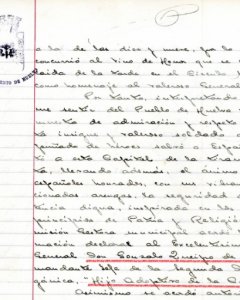 a la de las diez y nueve, por lo
concurrió al vino de Honor que se
caida de la tarde, en el Círculo
como homenaje al valeroso General
Por tanto, interpretando
me sentir del Pueblo de Huelva
miento de admiración y respeto
tá insigne y valeroso soldado
puñado de héroes salvó a España
to a esta Capital, de la
ta, llevando además, el ánimo
españoles honrados, con un
sionadas arengas, la seguridad
ticia digna, inspirada en los
principios de Patria y Religión
misión Gestora municipal acordó
mación declarar al Excelentísimo
General Don Gonzalo Queipo de
mandante Jefe de la Segunda
gánica, "Hijo Adoptivo de la
Asimismo se acordó